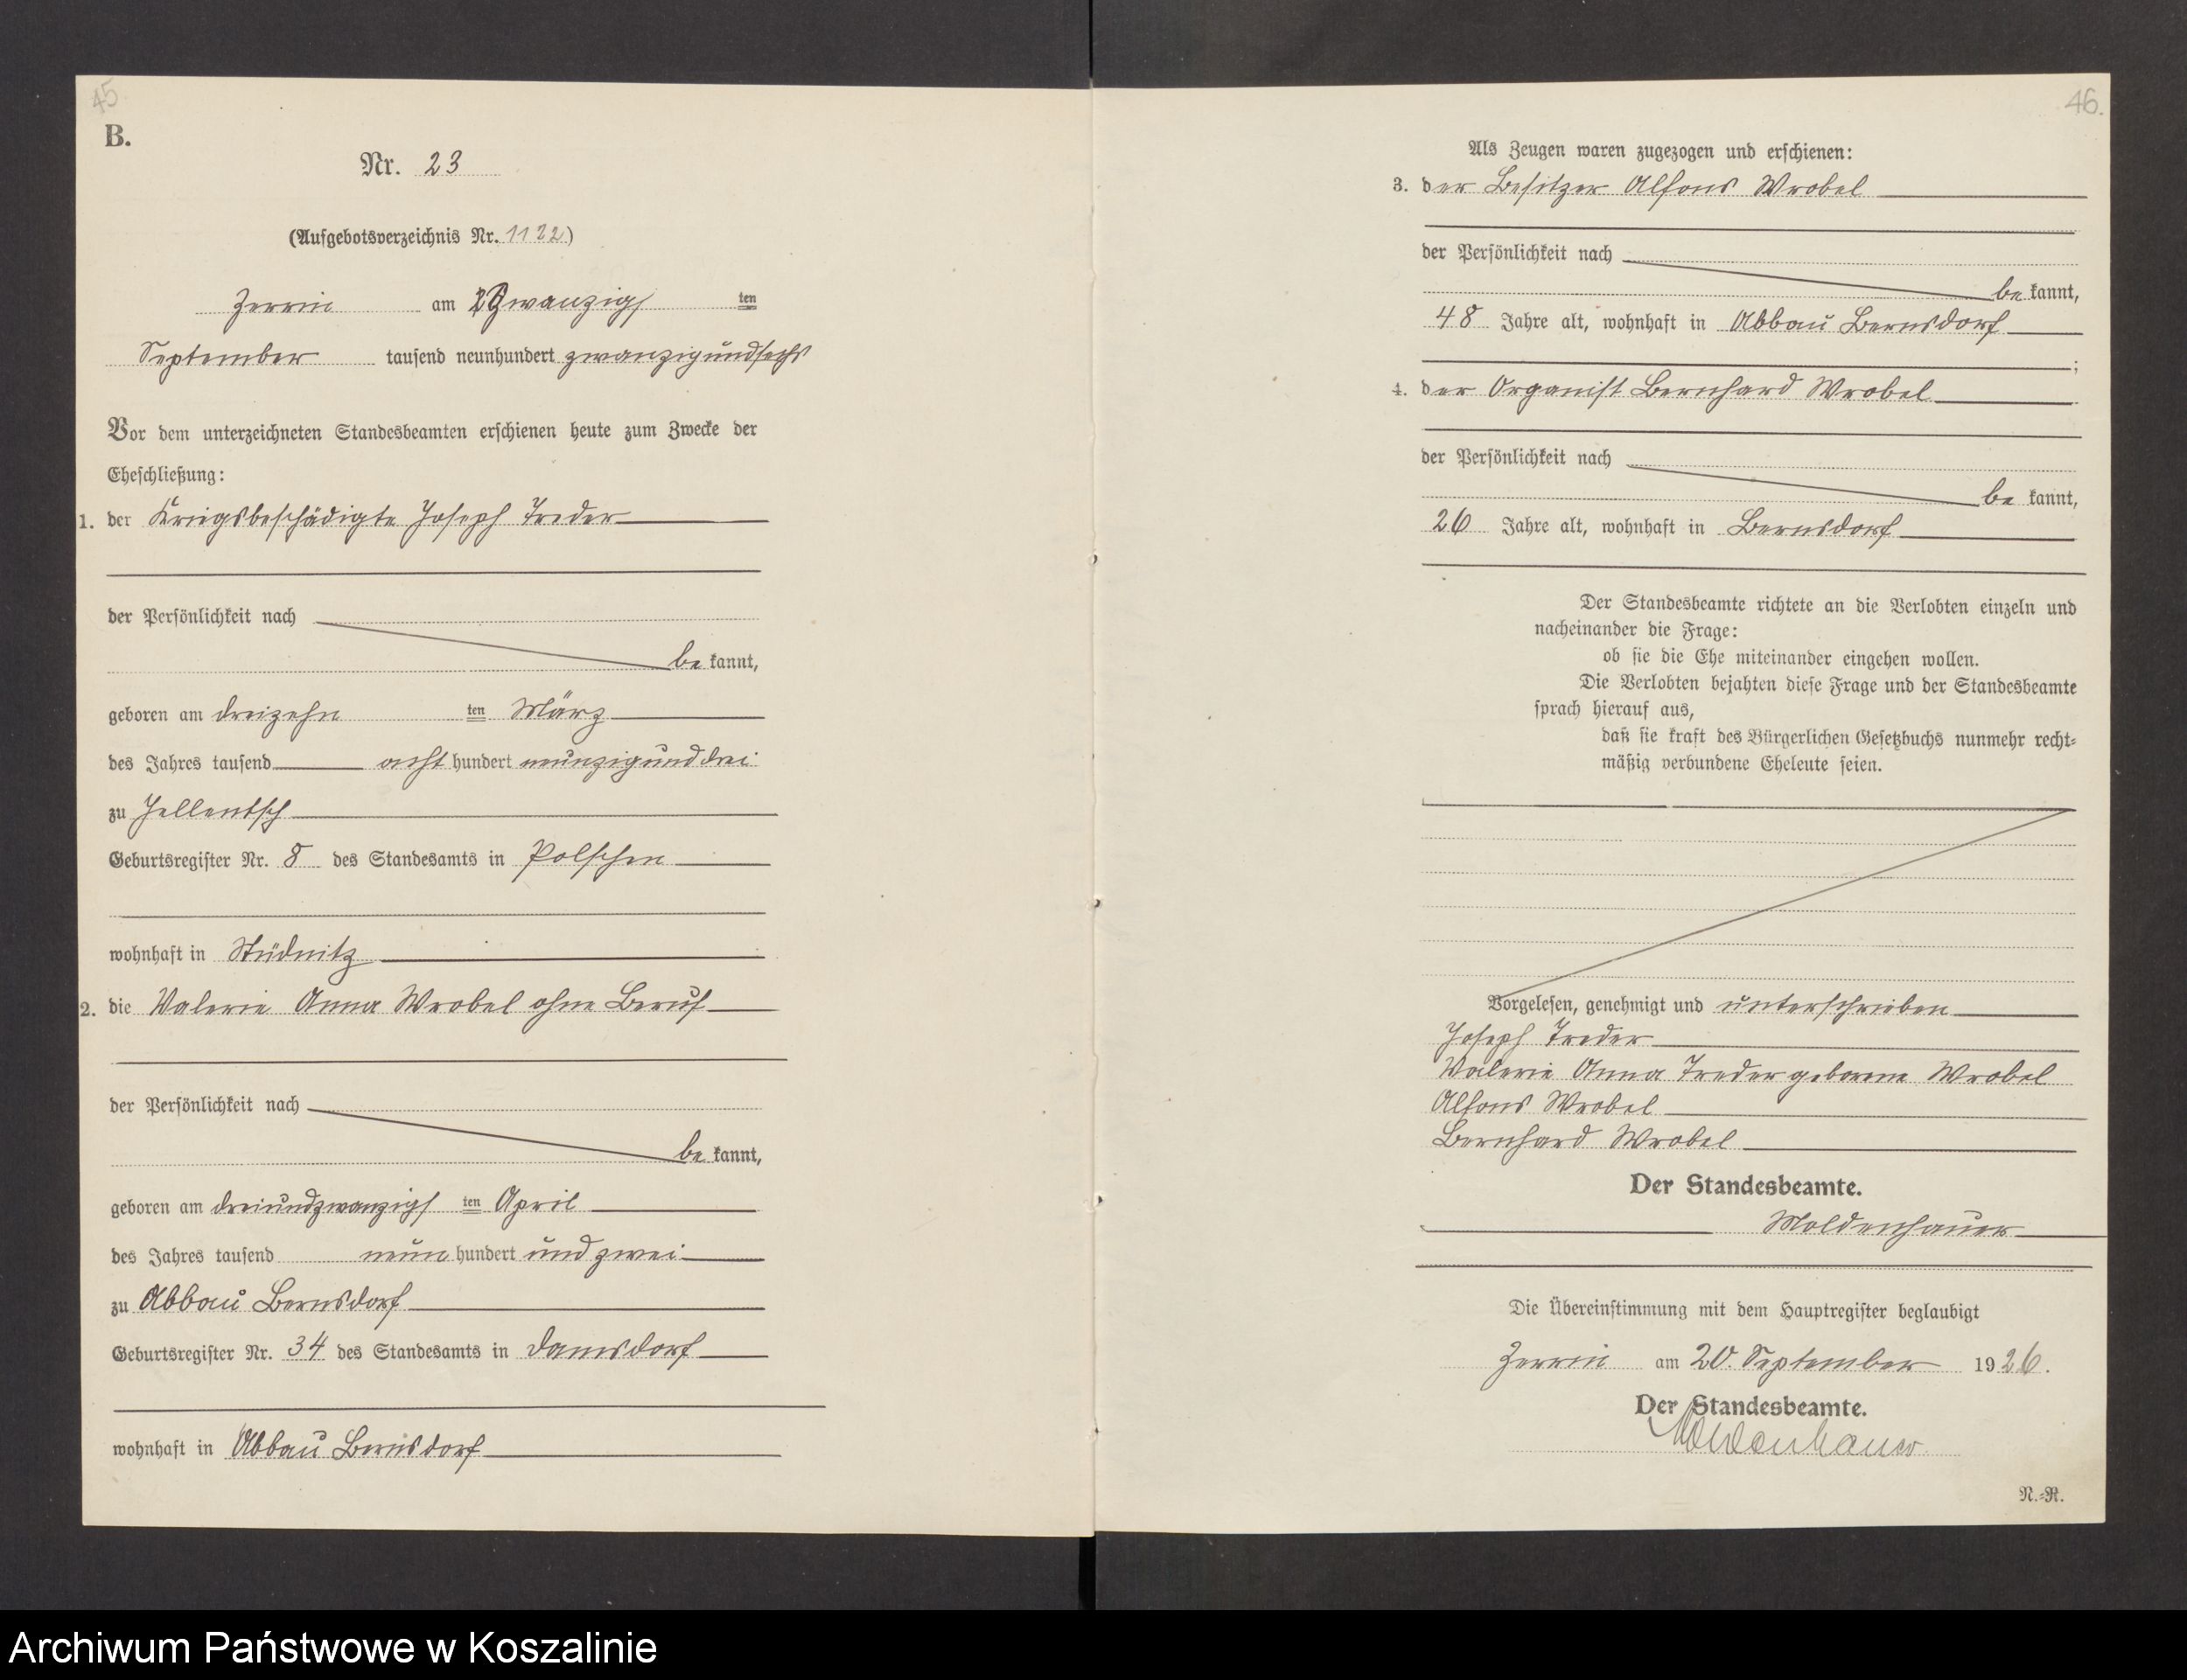 45
B.
Nr. 23
(Aufgebotsverzeichnis Nr. 1122)
Zerrin am Zwanzigsten
September tausend neunhundert zwanzigundsechs
Vor dem unterzeichneten Standesbeamten erschienen heute zum Zwecke der
Eheschließung:
1. der Kriegsbeschädigte Joseph Treder
der Persönlichkeit nach
be kannt,
geboren am dreizehn ten März
des Jahres tausend acht hundert neunzigunddrei
zu Jellentsch
Geburtsregister Nr. 8 des Standesamts in Polschen
wohnhaft in Stüdnitz
2. die Valerie Anna Wrobel ohne Beruf
der Persönlichkeit nach
be kannt,
geboren am dreiundzwanzigs ten April
des Jahres tausend neun hundert und zwei
zu Abbau Bernsdorf
Geburtsregister Nr. 34 des Standesamts in Damsdorf
wohnhaft in Abbau Bernsdorf
46.
Als Zeugen waren zugezogen und erschienen:
3. der Besitzer Alfons Wrobel
der Persönlichkeit nach
be kannt,
48 Jahre alt, wohnhaft in Abbau Bernsdorf
;
4. der Organist Bernhard Wrobel
der Persönlichkeit nach
be kannt,
26 Jahre alt, wohnhaft in Bernsdorf
Der Standesbeamte richtete an die Verlobten einzeln und
nacheinander die Frage:
ob sie die Ehe miteinander eingehen wollen.
Die Verlobten bejahten diese Frage und der Standesbeamte
sprach hierauf aus,
daß sie kraft des Bürgerlichen Gesetzbuchs nunmehr recht-
mäßig verbundene Eheleute seien.
Vorgelesen, genehmigt und unterschrieben
Joseph Treder
Valerie Anna Treder geborene Wrobel
Alfons Wrobel
Bernhard Wrobel
Der Standesbeamte.
Moldenhauer
Die Übereinstimmung mit dem Hauptregister beglaubigt
Zerrin am 20. September 1926.
Der Standesbeamte.
Moldenhauer
N.-R.
Archiwum Państwowe w Koszalinie